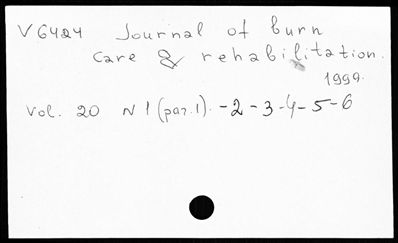 V6424 Journal of burn
care & rehabilitation.
1999.
Vol. 20 N 1 (par. 1). - 2 - 3 - 4 - 5 - 6